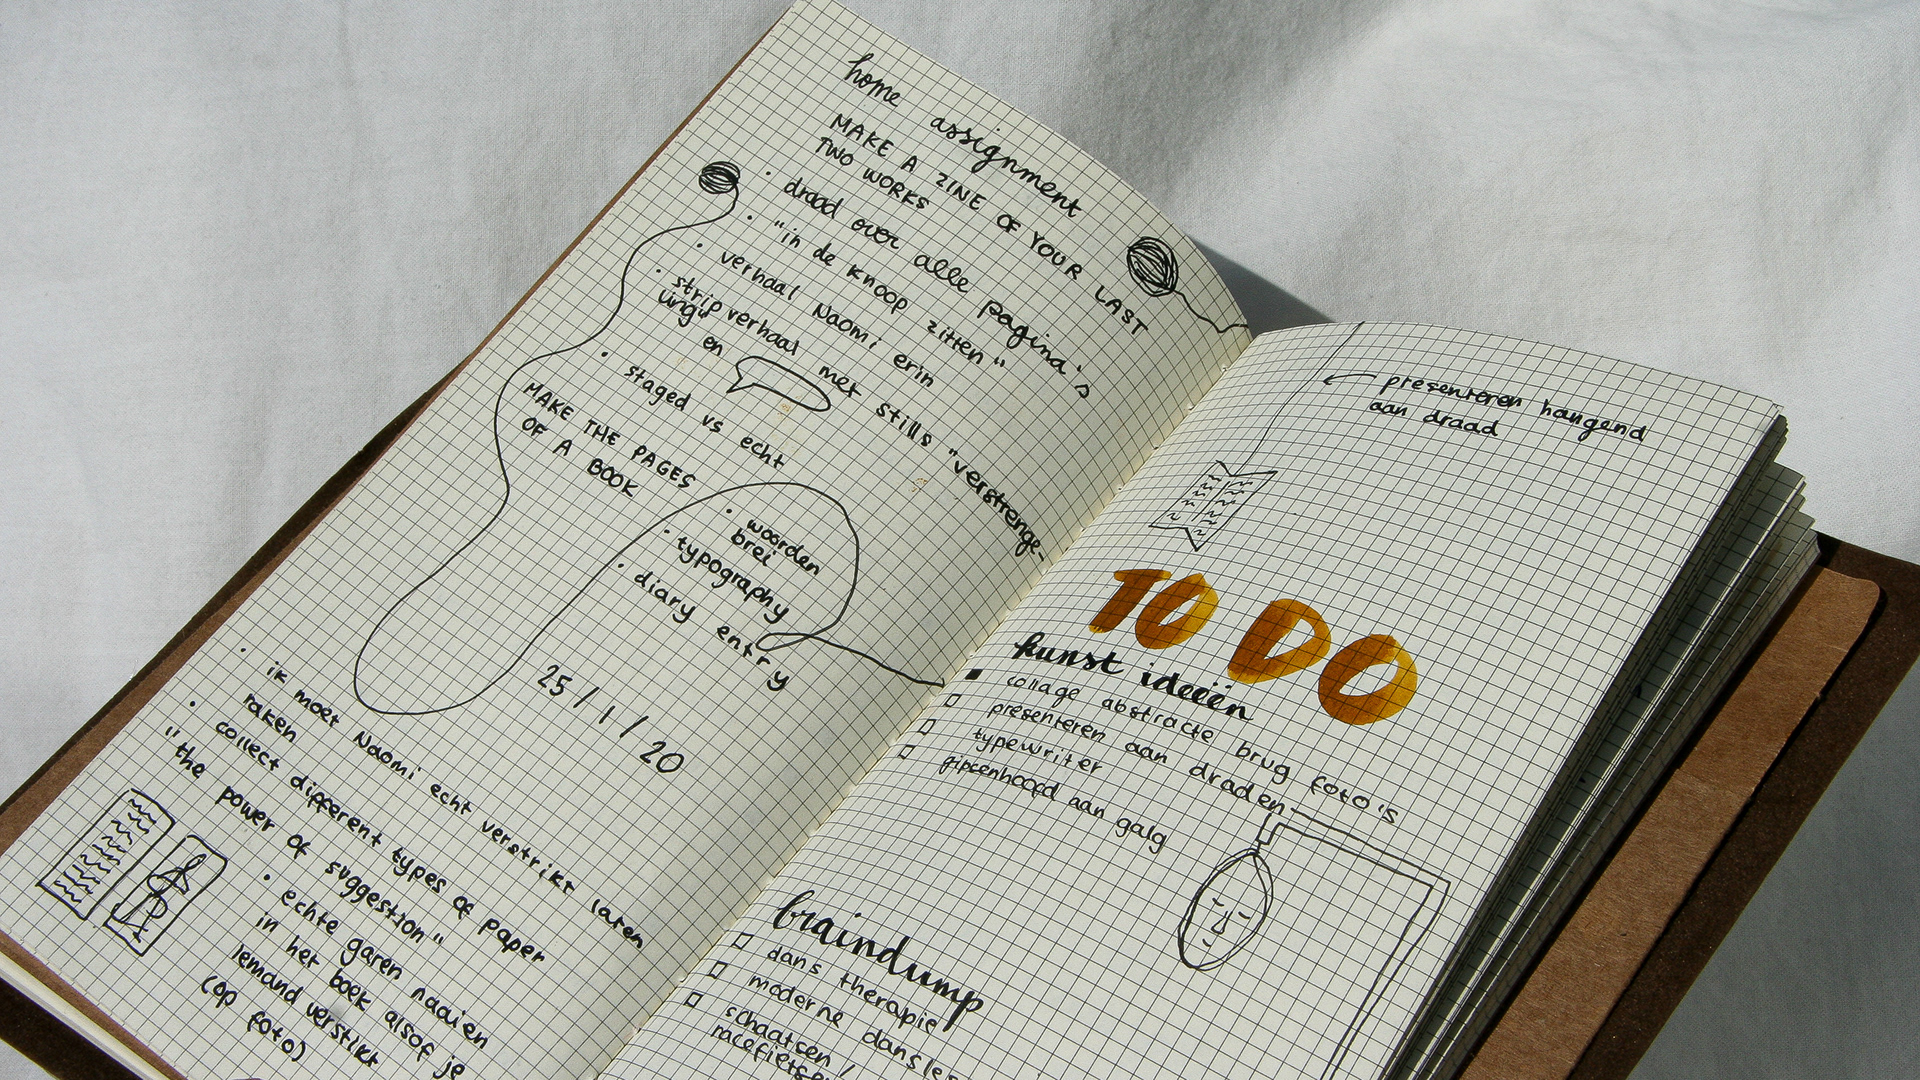 home assignment
MAKE A ZINE OF YOUR LAST
TWO WORKS
• draad over alle pagina's
• "in de knoop zitten"
• verhaal Naomi erin
• stripverhaal met stills "verstrenge-
ling"
en
• staged vs echt
MAKE THE PAGES
OF A BOOK
• woorden
brei
• typography
• diary entry
25/1/20
• ik moet Naomi echt verstrikt laten
raken
• collect different types of paper
"the power of suggestion"
• echte garen naaien
in het boek alsof je
iemand verstikt
(op foto)
presenteren hangend
aan draad
TO DO
kunst ideeën
collage abstracte brug foto's
presenteren aan draden
typewriter
gipsenhoofd aan galg
braindump
dans therapie
moderne dansles
schaatsen/